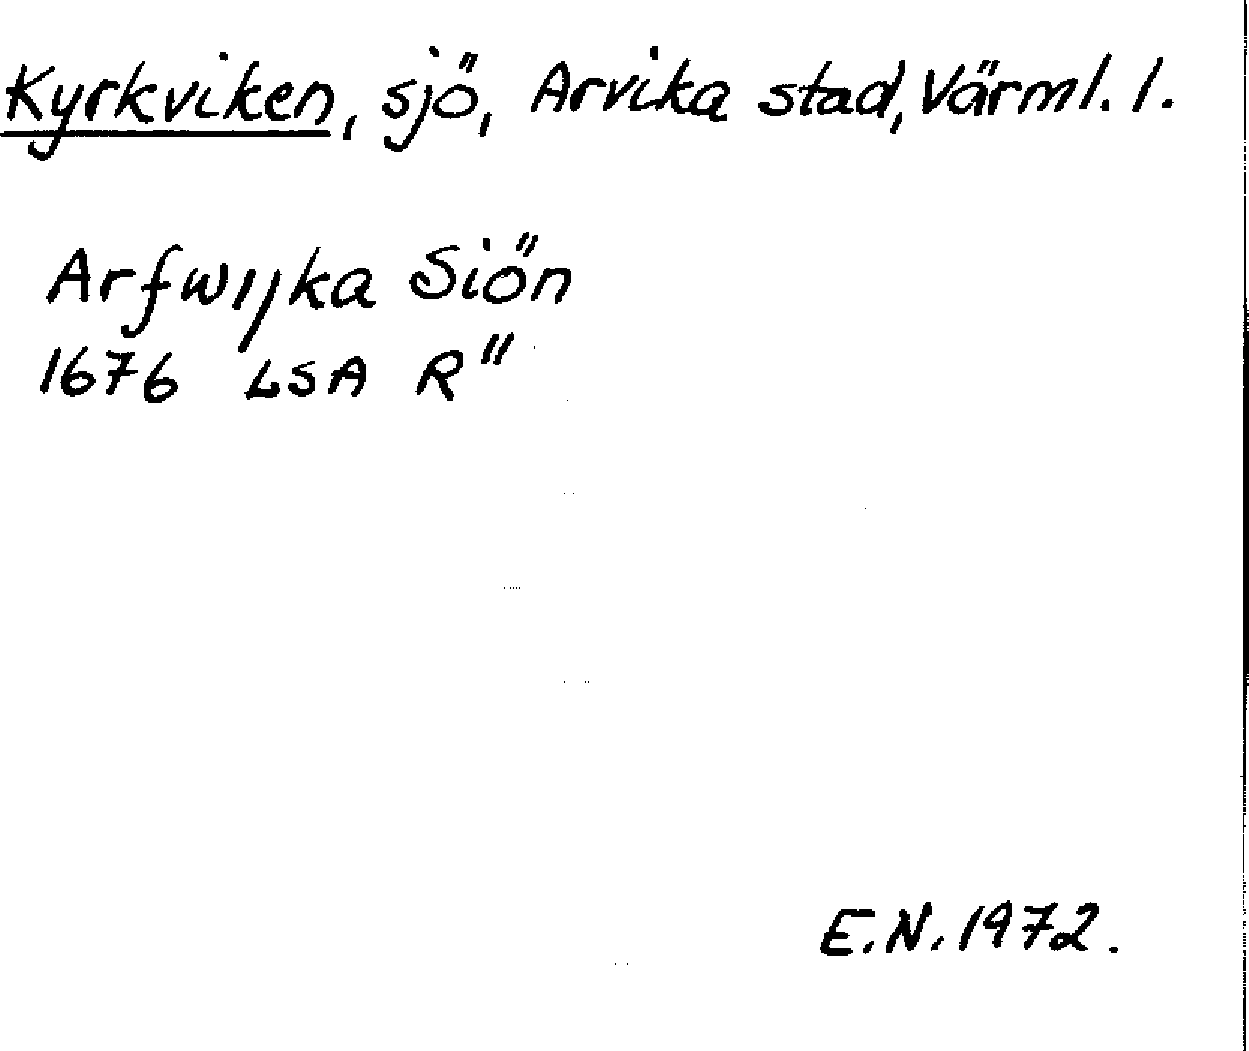 Kyrkviken, sjö, Arvika stad, Värml. l.
Arfwijka Siön
1676 LSA R"
E.N. 1972.